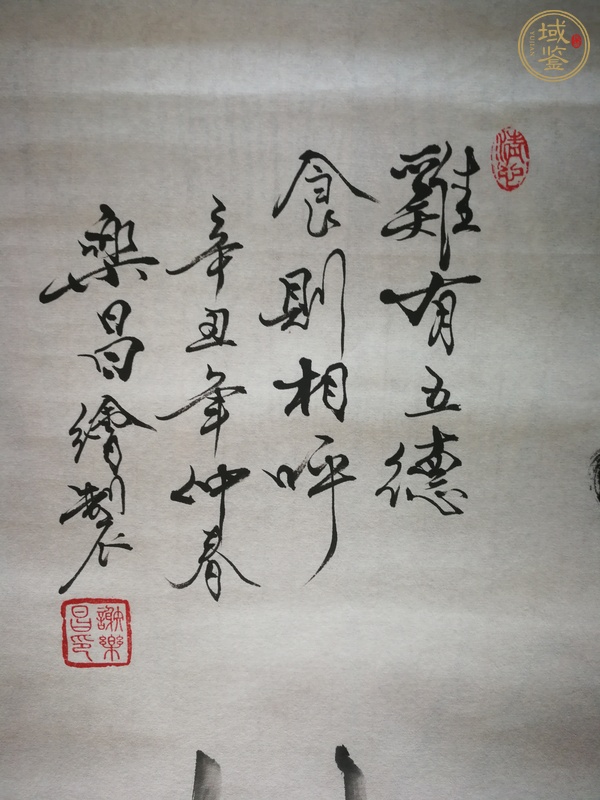 雞有五德
食則相呼
辛丑年仲春
樂昌繪製
謝樂昌印
域鉴